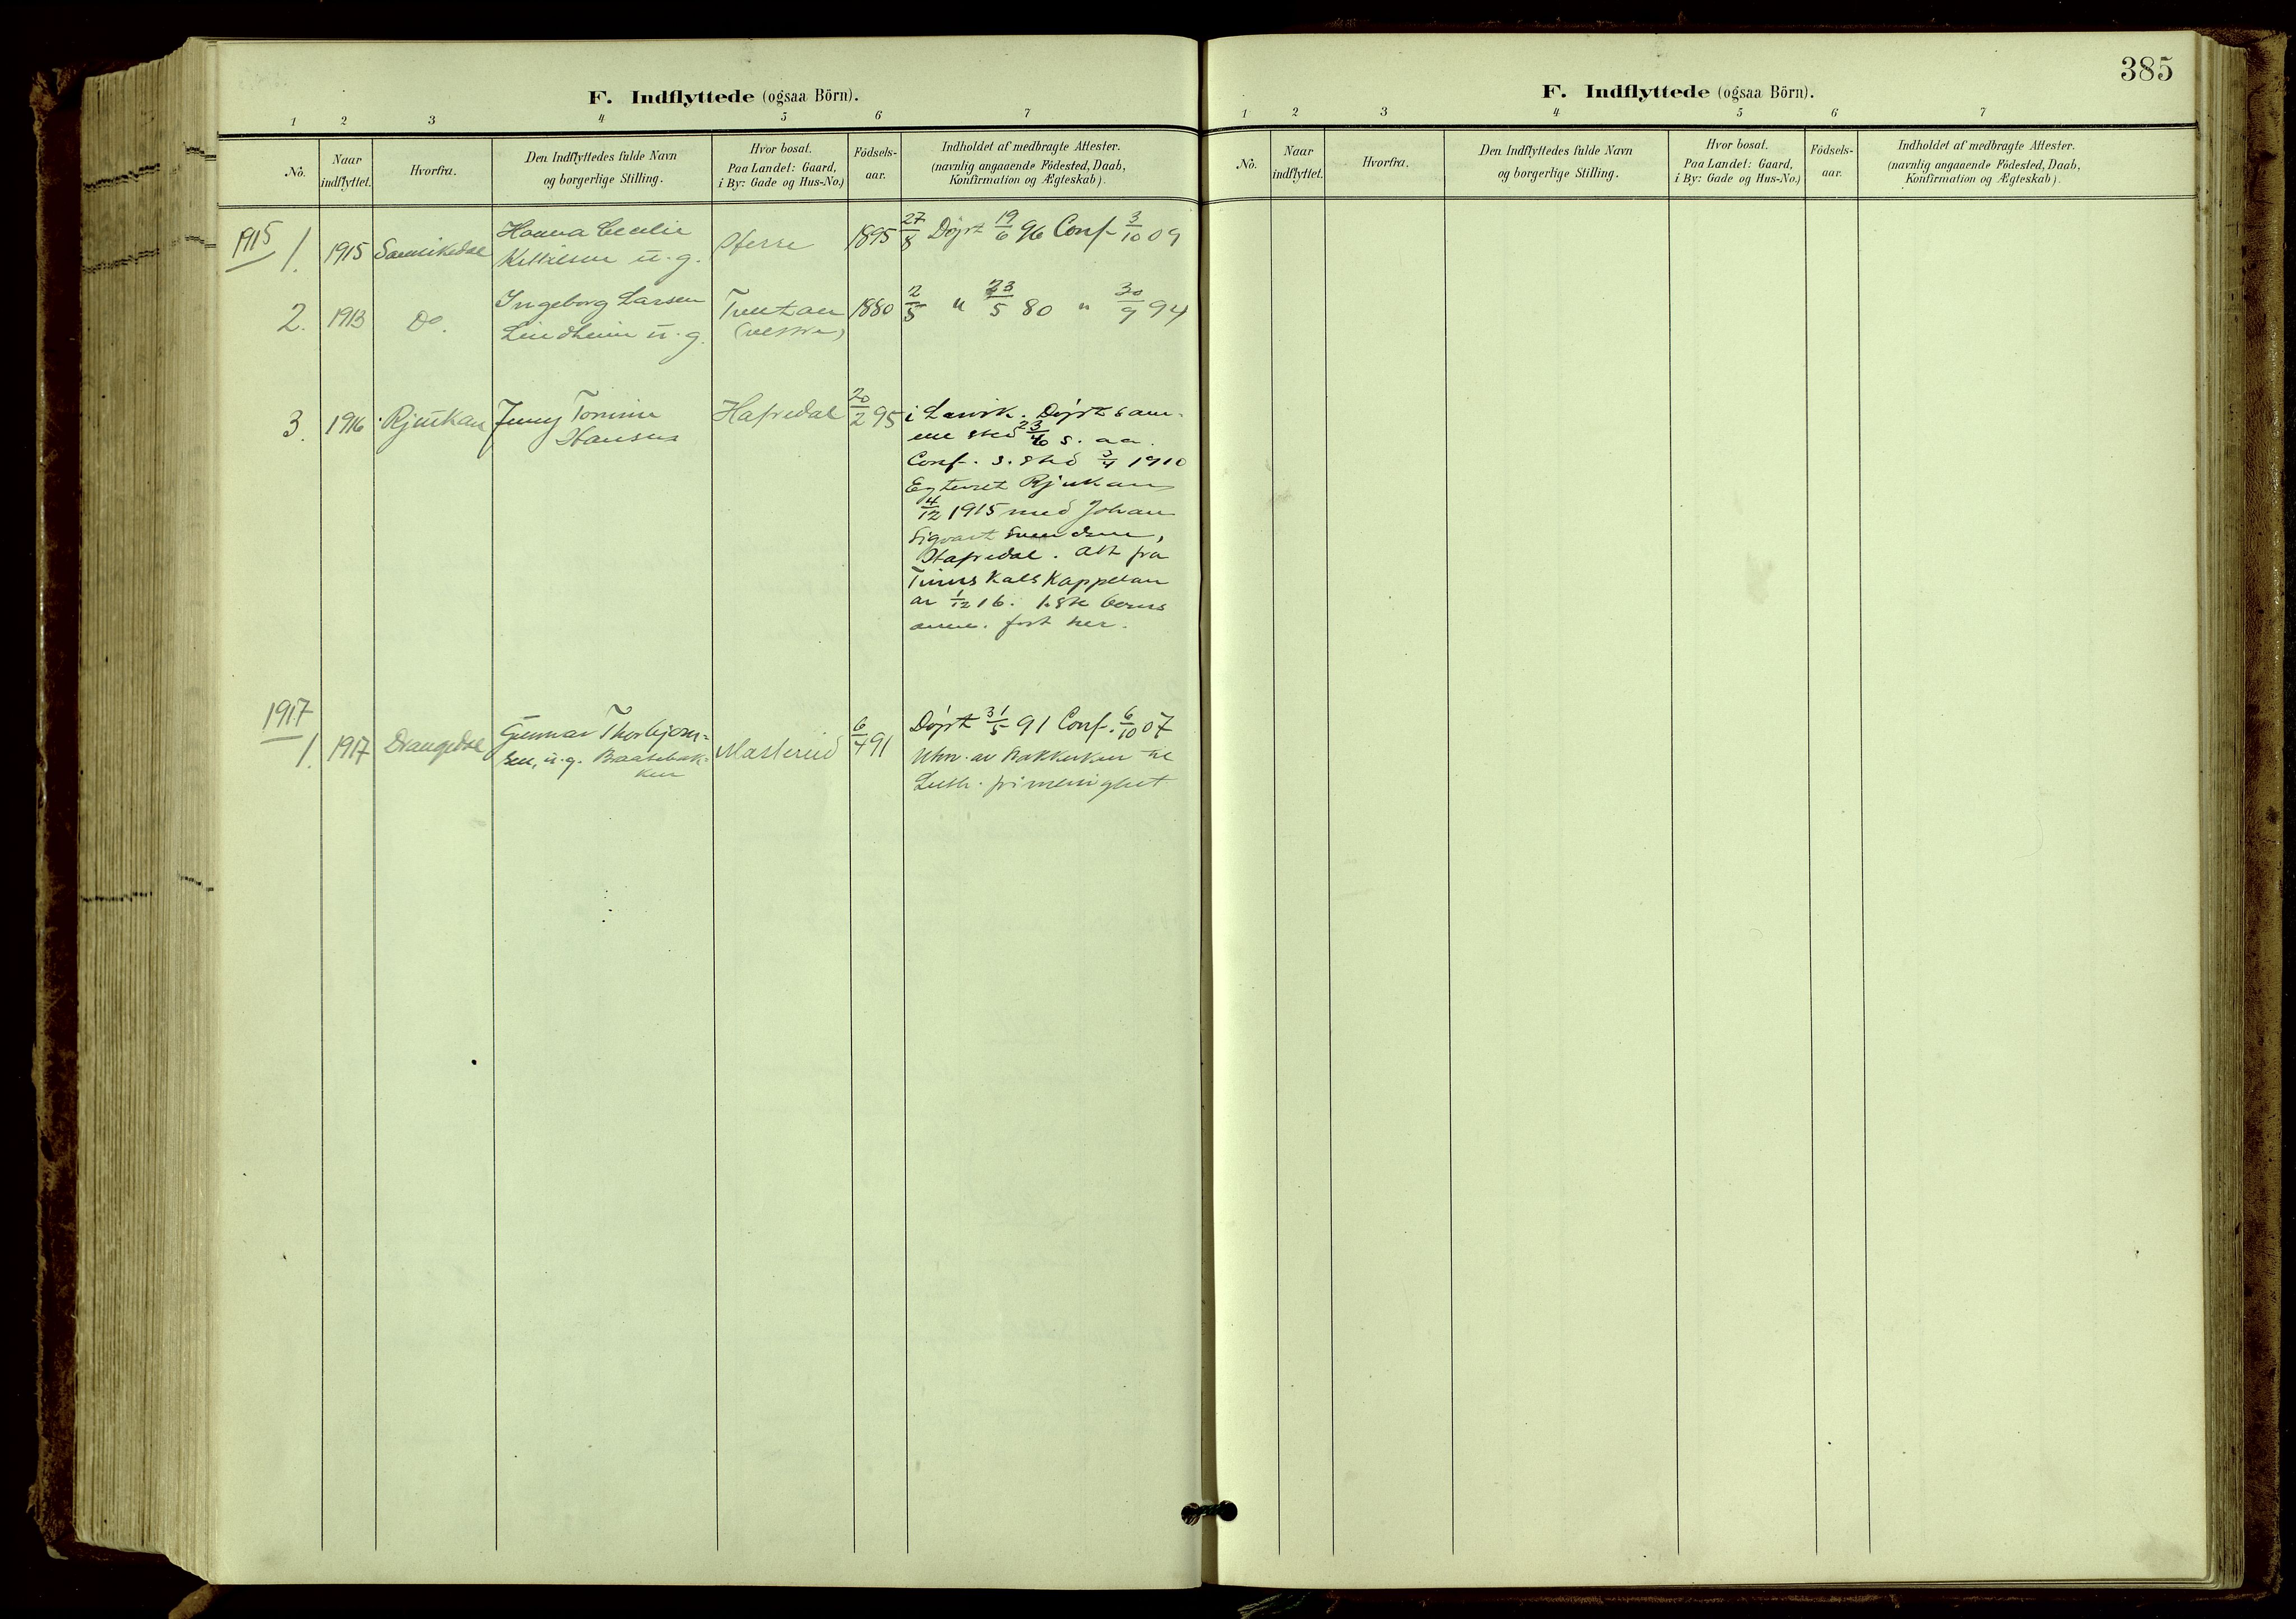 F. Indflyttede (ogsaa Börn).
1 2 3 4 5 6 7
No. Naar indflyttet. Hvorfra. Den Indflyttedes fulde Navn og borgerlige Stilling. Hvor bosat. Paa Landet: Gaard, i By: Gade og Hus-No.) Födsels-aar. Indholdet af medbragte Attester. (navnlig angaaende Födested, Daab, Konfirmation og Ægteskab).
1915
1. 1915 Sannikedal Hanna Cecilie 1895 27/8 Døpt 19/6 96 Conf. 3/10 09
Kittilsen u. g.
2. 1913 Do. Ingeborg Larsen 1880 2/5 " 23/5 80 " 30/9 94
Lindheim u. g. (vestre)
3. 1916 Rjukan Jenny Tomine Hafredal 20/2 95 i Larvik. Døpt sam-
Hansen me sted 23/ s. aa.
Conf. s. sted 3/4 1910
Egteviet Rjukan
4/12 1915 med Johan
Sigvart Svendsen,
Hafredal. Att fra
Tinns Kals Kappelan
av 1/12 16.
her.
1917
1. 1917 Drangedal Gunnar Thorbjørn- 6/4 91 Døpt 31/5 91 Conf. 6/10 07
sen, u. g. Baasebak-
ken
Luth. frimenighet
385
F. Indflyttede (ogsaa Börn).
1 2 3 4 5 6 7
No. Naar indflyttet. Hvorfra. Den Indflyttedes fulde Navn og borgerlige Stilling. Hvor bosat. Paa Landet: Gaard, i By: Gade og Hus-No.) Födsels-aar. Indholdet af medbragte Attester. (navnlig angaaende Födested, Daab, Konfirmation og Ægteskab).